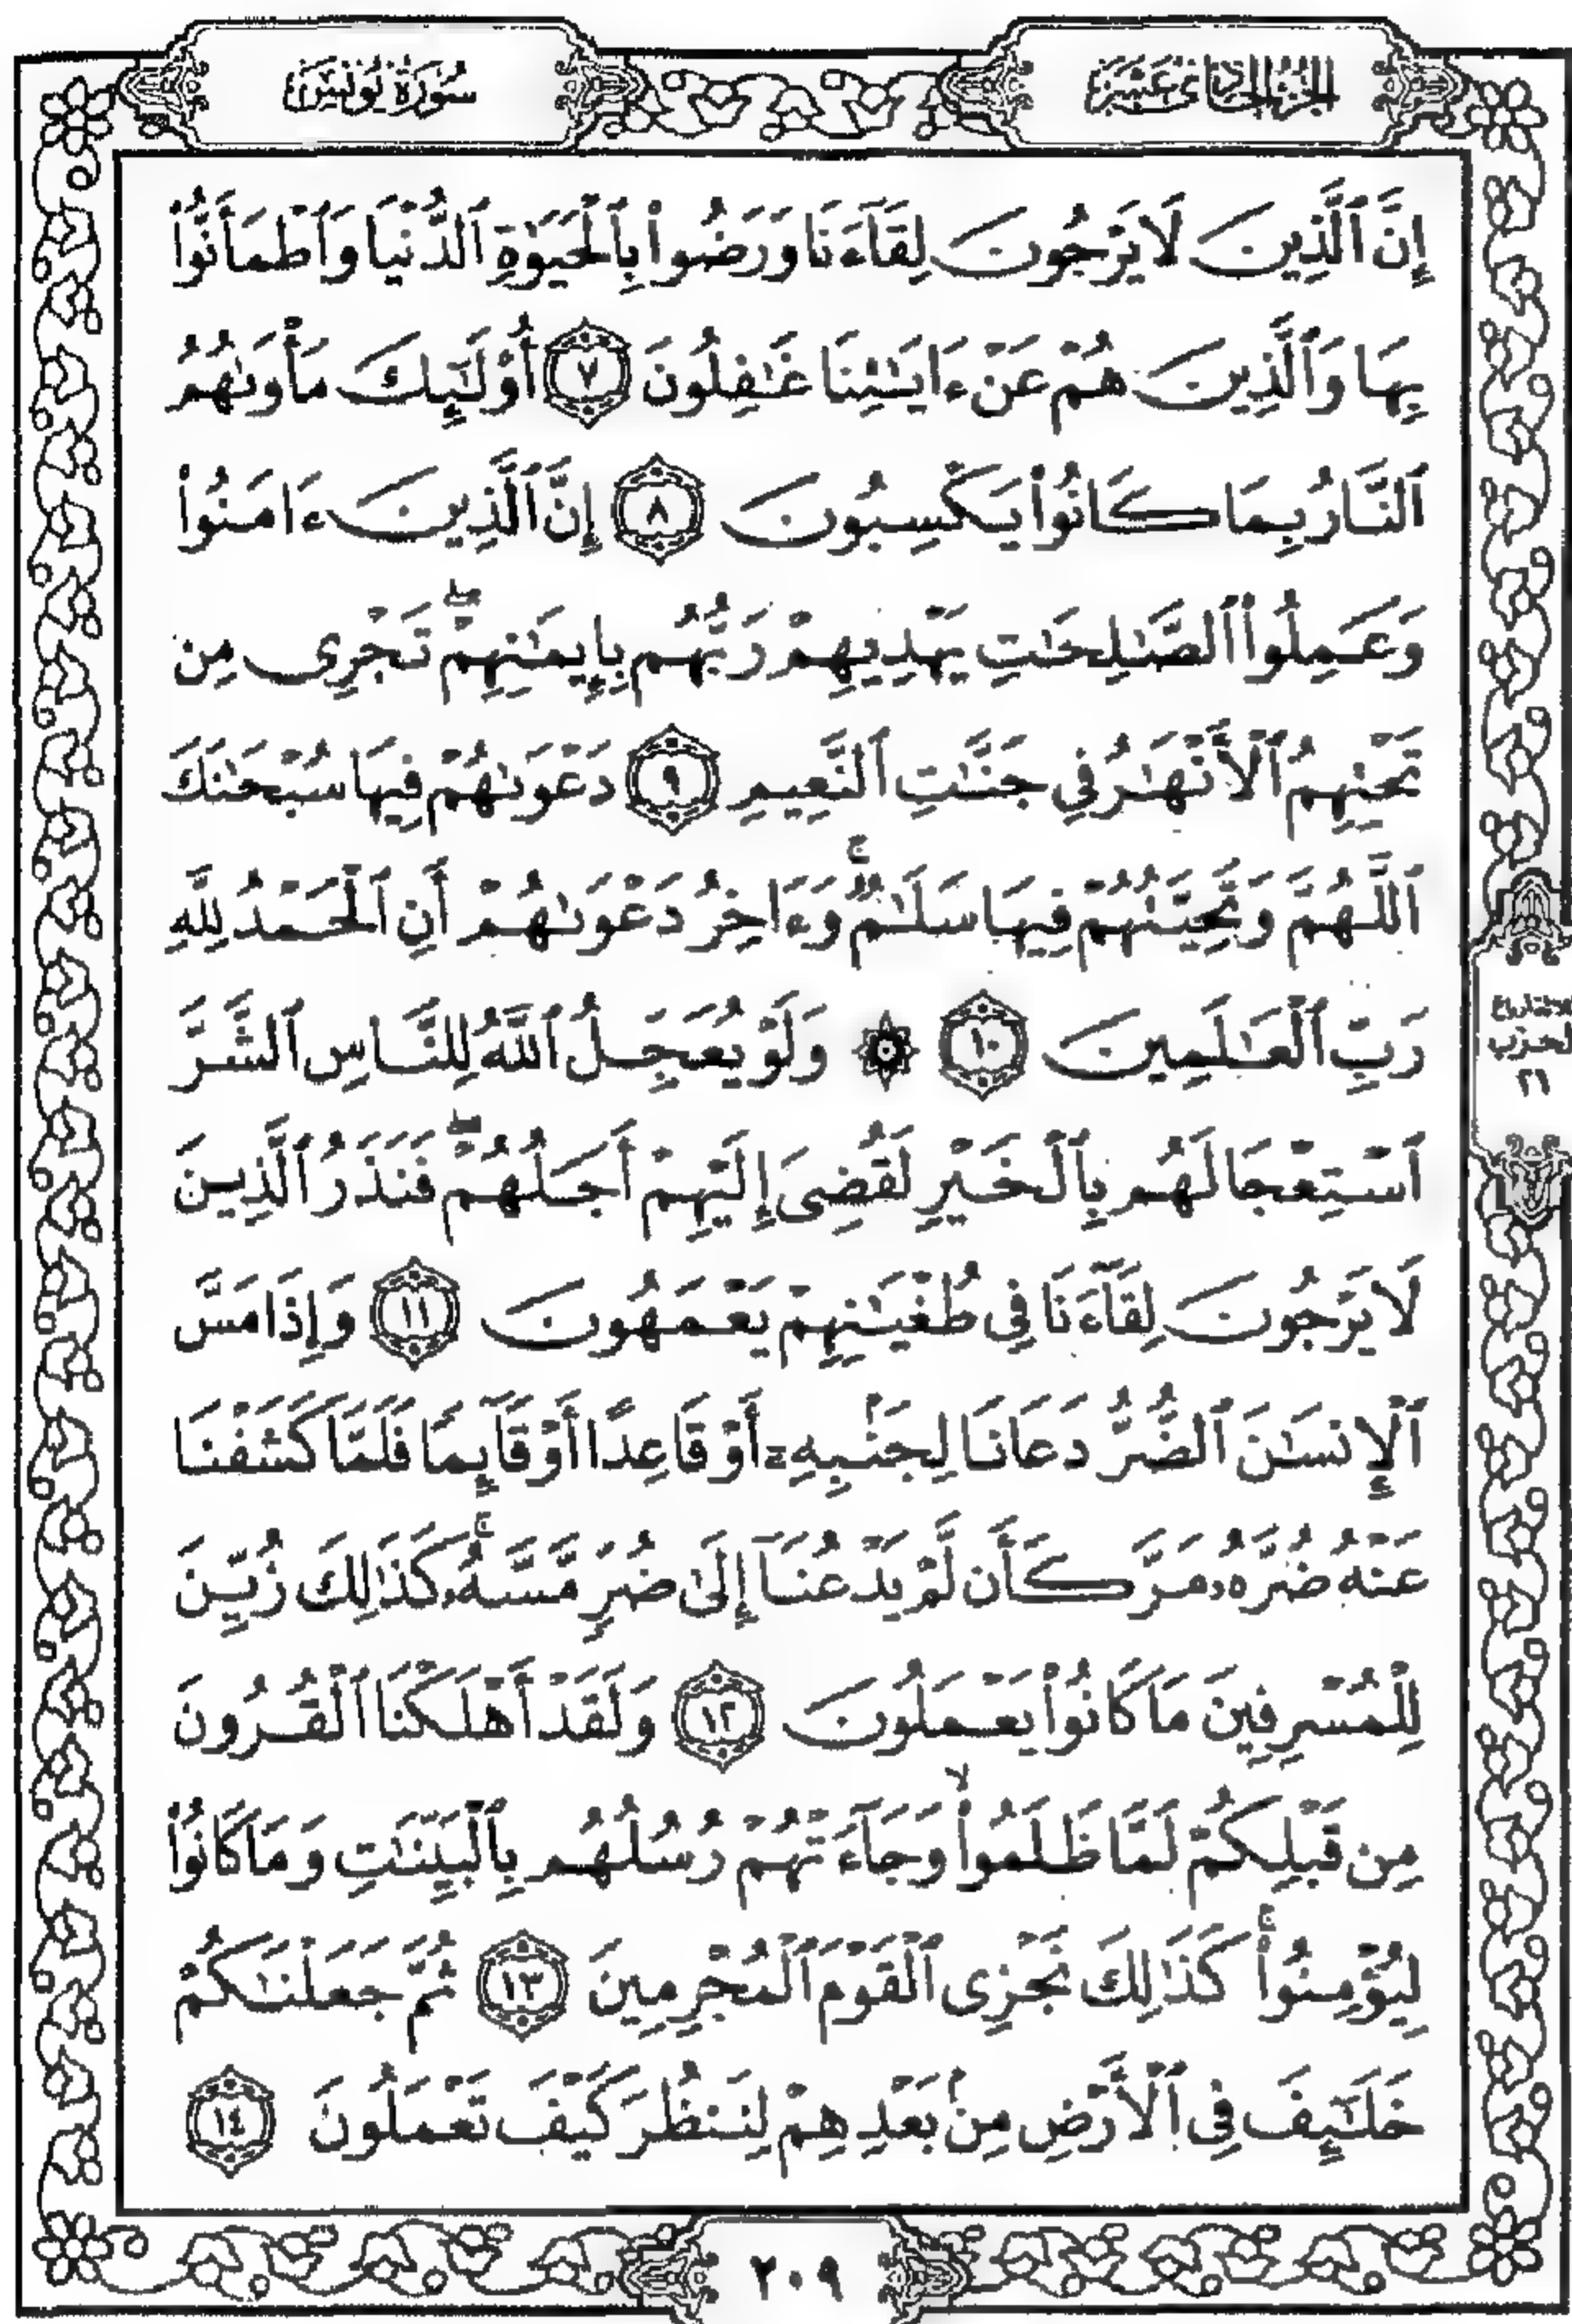 الجزء الحادي عشر
سورة يونس
إِنَّ ٱلَّذِينَ لَا يَرْجُونَ لِقَآءَنَا وَرَضُوا۟ بِٱلْحَيَوٰةِ ٱلدُّنْيَا وَٱطْمَأَنُّوا۟
بِهَا وَٱلَّذِينَ هُمْ عَنْ ءَايَـٰتِنَا غَـٰفِلُونَ ٧ أُو۟لَـٰٓئِكَ مَأْوَىٰهُمُ
ٱلنَّارُ بِمَا كَانُوا۟ يَكْسِبُونَ ٨ إِنَّ ٱلَّذِينَ ءَامَنُوا۟
وَعَمِلُوا۟ ٱلصَّـٰلِحَـٰتِ يَهْدِيهِمْ رَبُّهُم بِإِيمَـٰنِهِمْ ۖ تَجْرِى مِن
تَحْتِهِمُ ٱلْأَنْهَـٰرُ فِي جَنَّـٰتِ ٱلنَّعِيمِ ٩ دَعْوَىٰهُمْ فِيهَا سُبْحَـٰنَكَ
ٱللَّهُمَّ وَتَحِيَّتُهُمْ فِيهَا سَلَـٰمٌ ۚ وَءَاخِرُ دَعْوَىٰهُمْ أَنِ ٱلْحَمْدُ لِلَّهِ
رَبِّ ٱلْعَـٰلَمِينَ ١٠ ۞ وَلَوْ يُعَجِّلُ ٱللَّهُ لِلنَّاسِ ٱلشَّرَّ
ٱسْتِعْجَالَهُم بِٱلْخَيْرِ لَقُضِىَ إِلَيْهِمْ أَجَلُهُمْ ۖ فَنَذَرُ ٱلَّذِينَ
لَا يَرْجُونَ لِقَآءَنَا فِى طُغْيَـٰنِهِمْ يَعْمَهُونَ ١١ وَإِذَا مَسَّ
ٱلْإِنسَـٰنَ ٱلضُّرُّ دَعَانَا لِجَنۢبِهِۦٓ أَوْ قَاعِدًا أَوْ قَآئِمًا فَلَمَّا كَشَفْنَا
عَنْهُ ضُرَّهُۥ مَرَّ كَأَن لَّمْ يَدْعُنَآ إِلَىٰ ضُرٍّ مَّسَّهُۥ ۚ كَذَٰلِكَ زُيِّنَ
لِلْمُسْرِفِينَ مَا كَانُوا۟ يَعْمَلُونَ ١٢ وَلَقَدْ أَهْلَكْنَا ٱلْقُرُونَ
مِن قَبْلِكُمْ لَمَّا ظَلَمُوا۟ ۙ وَجَآءَتْهُمْ رُسُلُهُم بِٱلْبَيِّنَـٰتِ وَمَا كَانُوا۟
لِيُؤْمِنُوا۟ ۚ كَذَٰلِكَ نَجْزِى ٱلْقَوْمَ ٱلْمُجْرِمِينَ ١٣ ثُمَّ جَعَلْنَـٰكُمْ
خَلَـٰٓئِفَ فِى ٱلْأَرْضِ مِنۢ بَعْدِهِمْ لِنَنظُرَ كَيْفَ تَعْمَلُونَ ١٤
٢٠٩